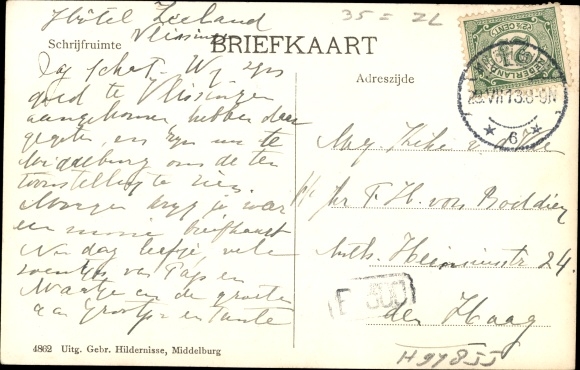 Hôtel Zeeland
Vlissingen
35 = ZL
Schrijfruimte
BRIEFKAART
Adreszijde
Dag schat. Wij zijn
goed te Vlissingen
aangekomen hebben daar
gegeten, en zijn nu te
Middelburg om de ten
toonstelling te zien.
Morgen krijg je weer
een mooie briefkaart
Nu dag liefje, vele
zoentjes van Paps en
Maatje en de groeten
aan Grootje en tante
NEDERLAND
2½ CENT
VII 13.8-9N
6
Mej.
p/a
T. H. von
Anth. Heinsiusstr 24.
den Haag
4862 Uitg. Gebr. Hildernisse, Middelburg
H97855